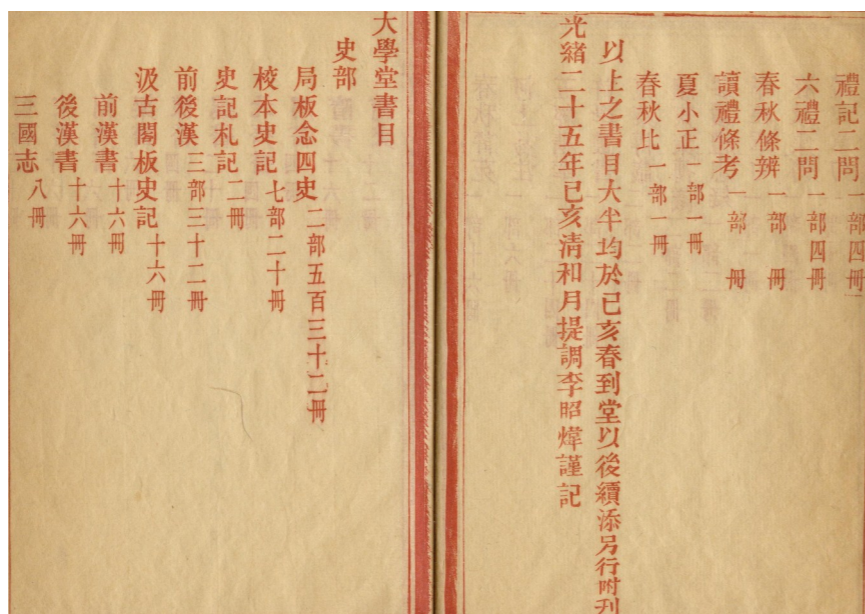 禮記二問一部四冊
六禮二問一部四冊
春秋條辨一部 冊
讀禮條考一部 冊
夏小正一部一冊
春秋比一部一冊
以上之書目大半均於已亥春到堂以後續添另行附刊
光緒二十五年已亥清和月提調李昭煒謹記
大學堂書目
史部
局板念四史二部五百三十二冊
校本史記七部二十冊
史記札記二冊
前後漢三部三十二冊
汲古閣板史記十六冊
前漢書十六冊
後漢書十六冊
三國志八冊